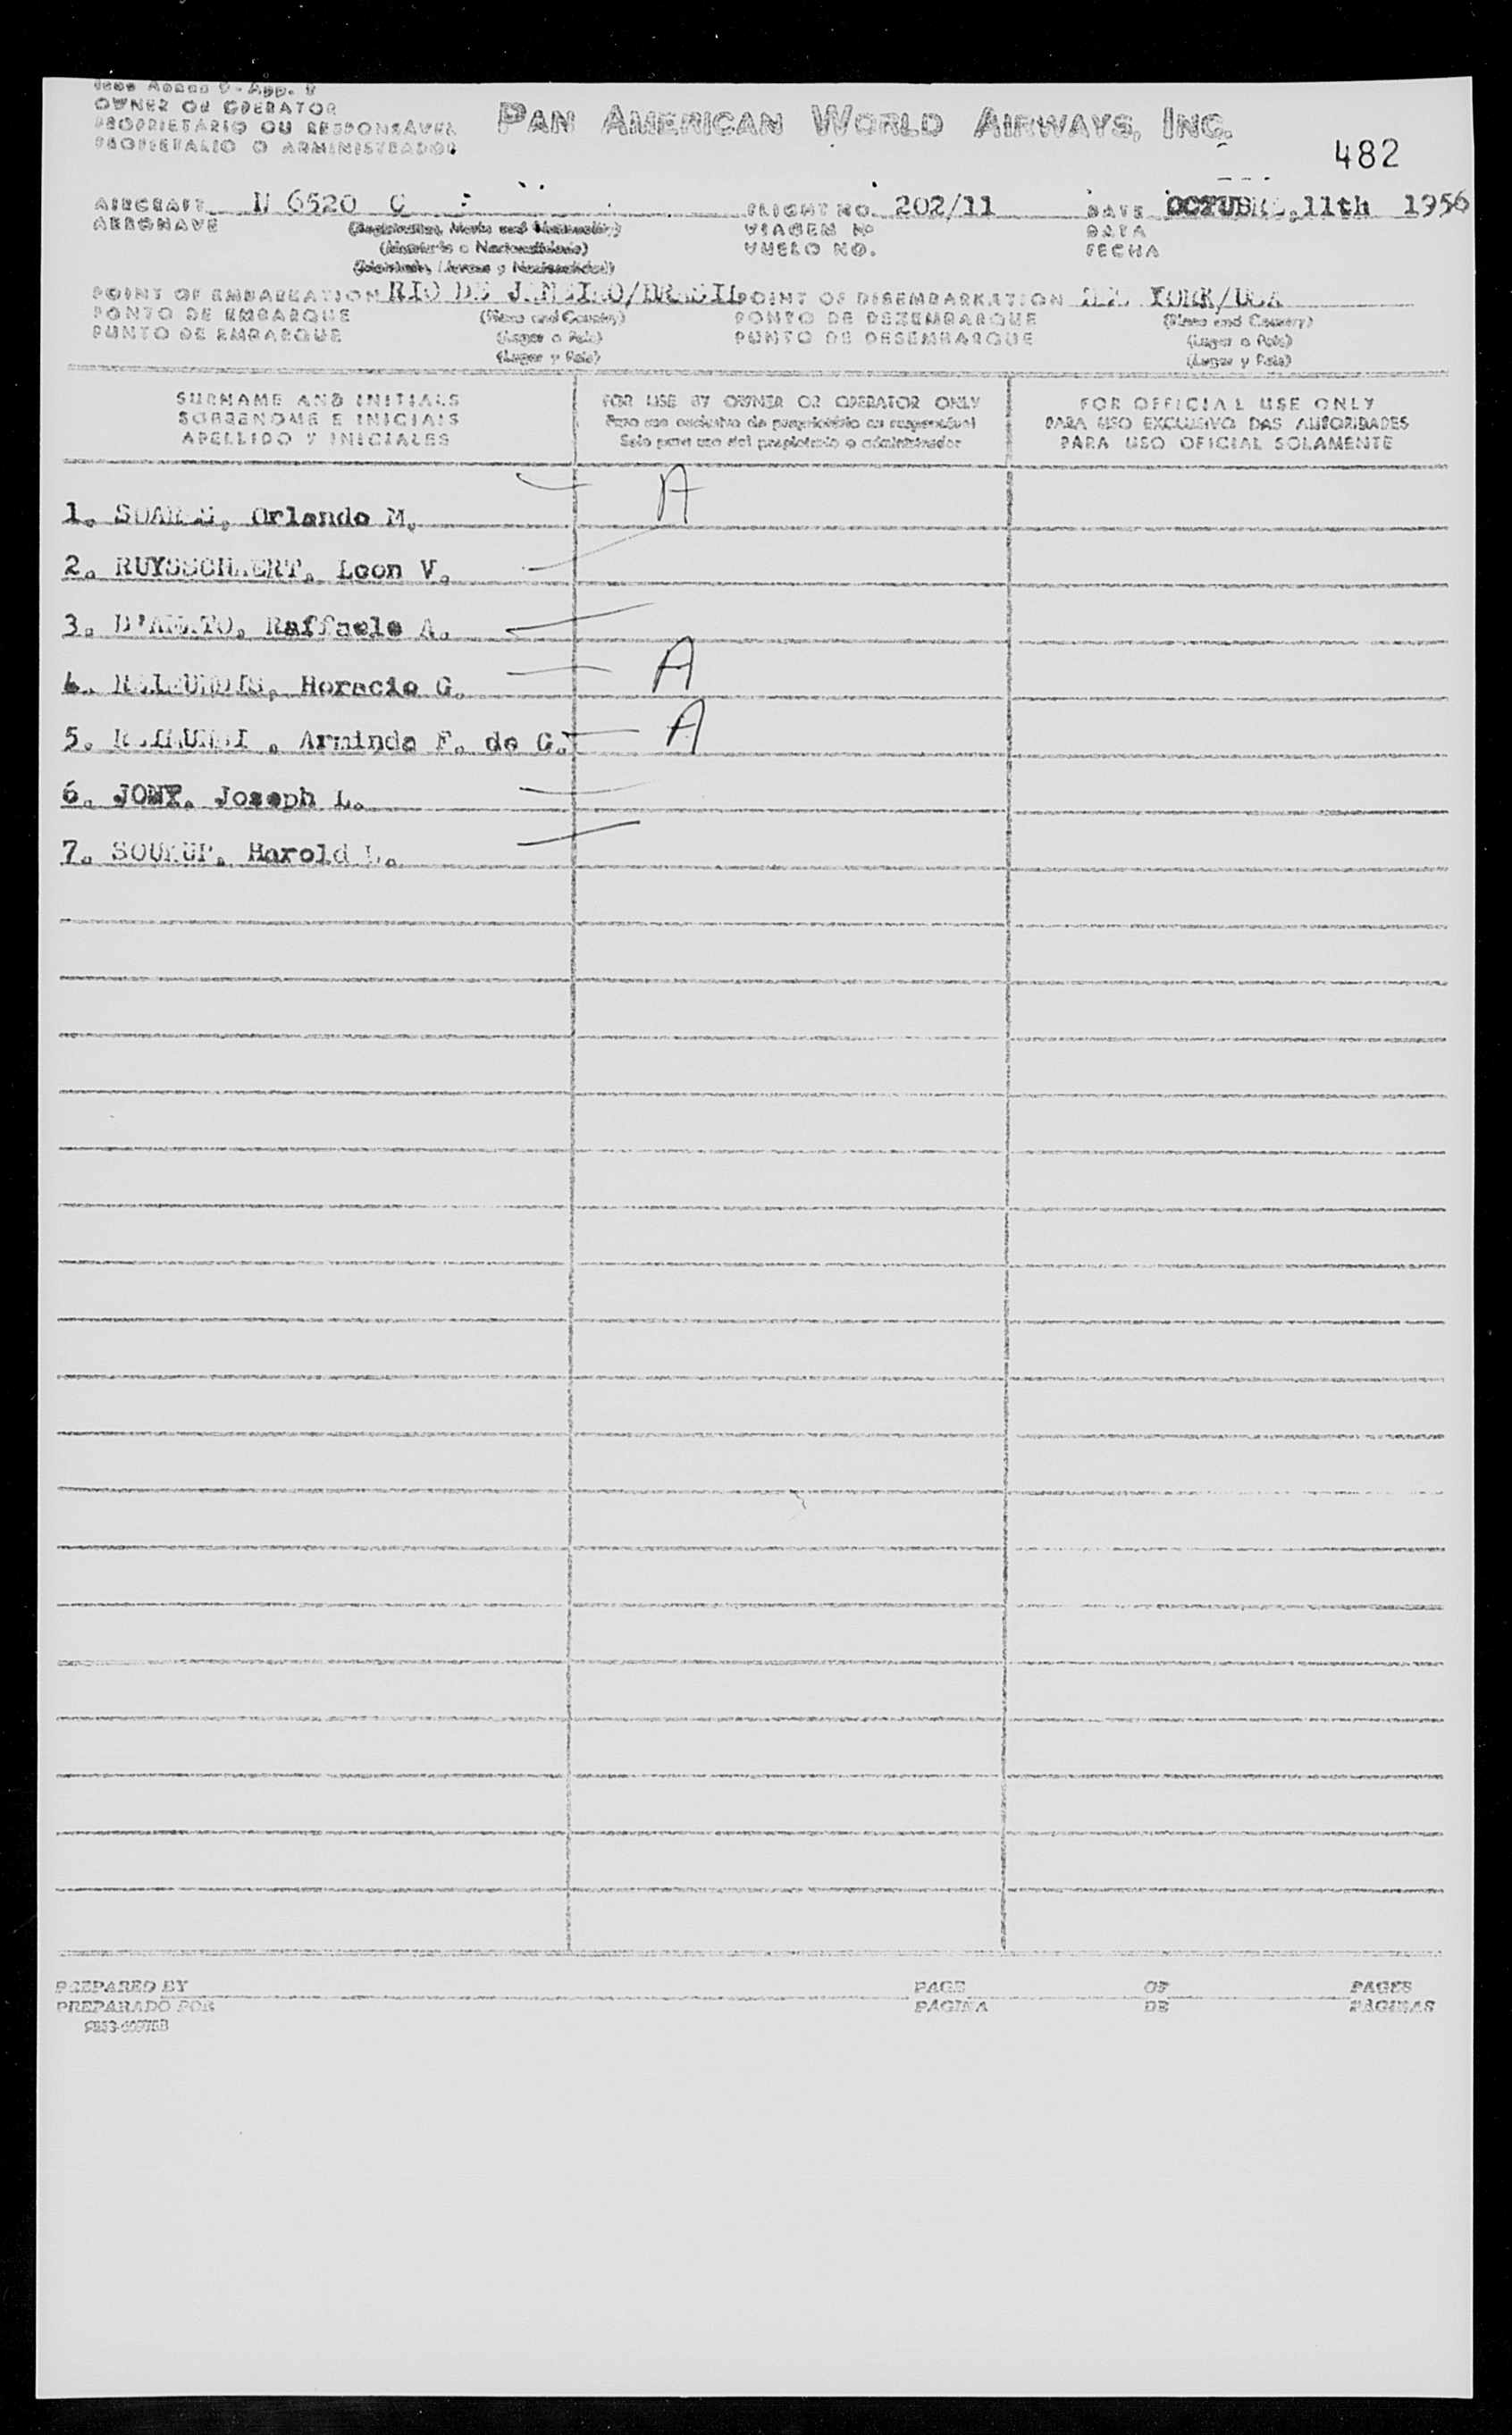 OWNER OR OPERATOR
PROPRIETÁRIO OU RESPONSÁVEL
PROPIETARIO O ADMINISTRADOR
PAN AMERICAN WORLD AIRWAYS, INC.
482
AIRCRAFT N 6520 C FLIGHT NO. 202/11 DATE OCTUBRE, 11th 1956
AERONAVE VIAGEM Nº DATA
VUELO NO. FECHA
POINT OF EMBARKATION RIO DE JANEIRO/BRASIL POINT OF DISEMBARKATION YORK/USA
PONTO DE EMBARQUE (Place and Country) PONTO DE DEZEMBARQUE (Place and Country)
PUNTO DE EMBARQUE (Lugar o Pais) PUNTO DE DESEMBARQUE (Lugar o Pais)
(Lugar y Pais) (Lugar y Pais)
SURNAME AND INITIALS FOR USE BY OWNER OR OPERATOR ONLY FOR OFFICIAL USE ONLY
SOBRENOME E INICIAIS Para uso exclusivo do proprietário ou responsável PARA USO EXCLUSIVO DAS AUTORIDADES
APELLIDO Y INICIALES Solo para uso del propietario o administrador PARA USO OFICIAL SOLAMENTE
1. SOARES, Orlando M. A
2. RUYSSCHAERT, Leon V.
3. D'AMATO, Raffaele A.
4. Horacio G. A
5. Arminda F. de G. A
6. JONY, Joseph L.
7. SOUKUP, Harold L.
PREPARED BY PAGE OF PAGES
PREPARADO POR PÁGINA DE PÁGINAS